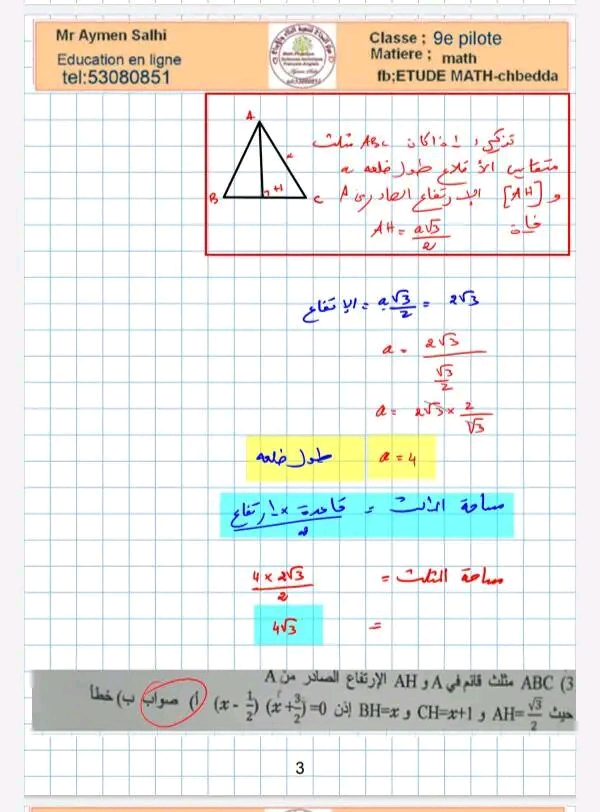 Mr Aymen Salhi
Education en ligne
tel:53080851
Classe ; 9e pilote
Matiere ; math
fb;ETUDE MATH-chbedda
تذكير: إذا كان ABC مثلث
متقايس الأضلاع طول ضلعه a
و [AH] الإرتفاع الصادر من A
فإن AH = a√3/2
A
B
H
C
a
الإرتفاع = a√3/2 = 2√3
a = 2√3 / (√3/2)
a = 2√3 × 2/√3
طول ضلعه a = 4
مساحة المثلث = قاعدة × ارتفاع / 2
مساحة المثلث = 4 × 2√3 / 2
= 4√3
3) ABC مثلث قائم في A و AH الإرتفاع الصادر من A
حيث AH=√3/2 و CH=x+1 و BH=x إذن (x - 1/2) (x + 3/2) =0 أ) صواب ب) خطأ
3